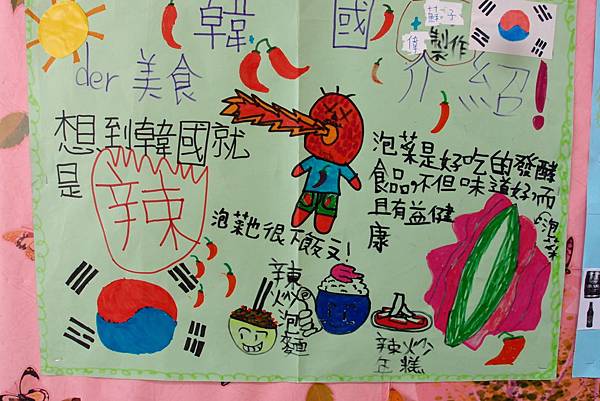 韓國
der 美食介紹!
蘇仔
偉 製作
想到韓國就
是
辣
泡菜是好吃的發酵
食品,不但味道好而
且有益健
康
泡菜
泡菜也很下飯ㄡ!
辣炒泡麵
辣炒
年糕